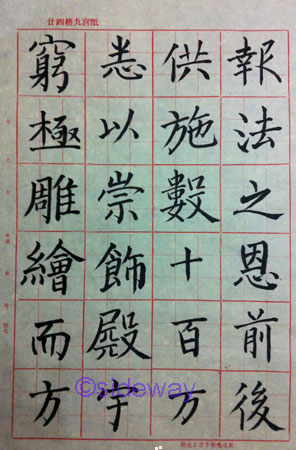 廿四格九宮紙
報法之恩前後
供施數十百万
悉以崇飾殿宇
窮極雕繪而方
©sideway